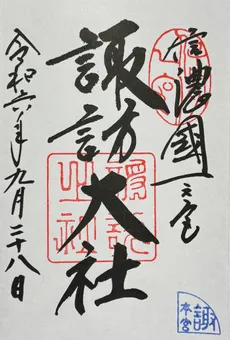 信濃國一之宮
諏訪大社
令和六年九月二十八日
諏訪
本宮